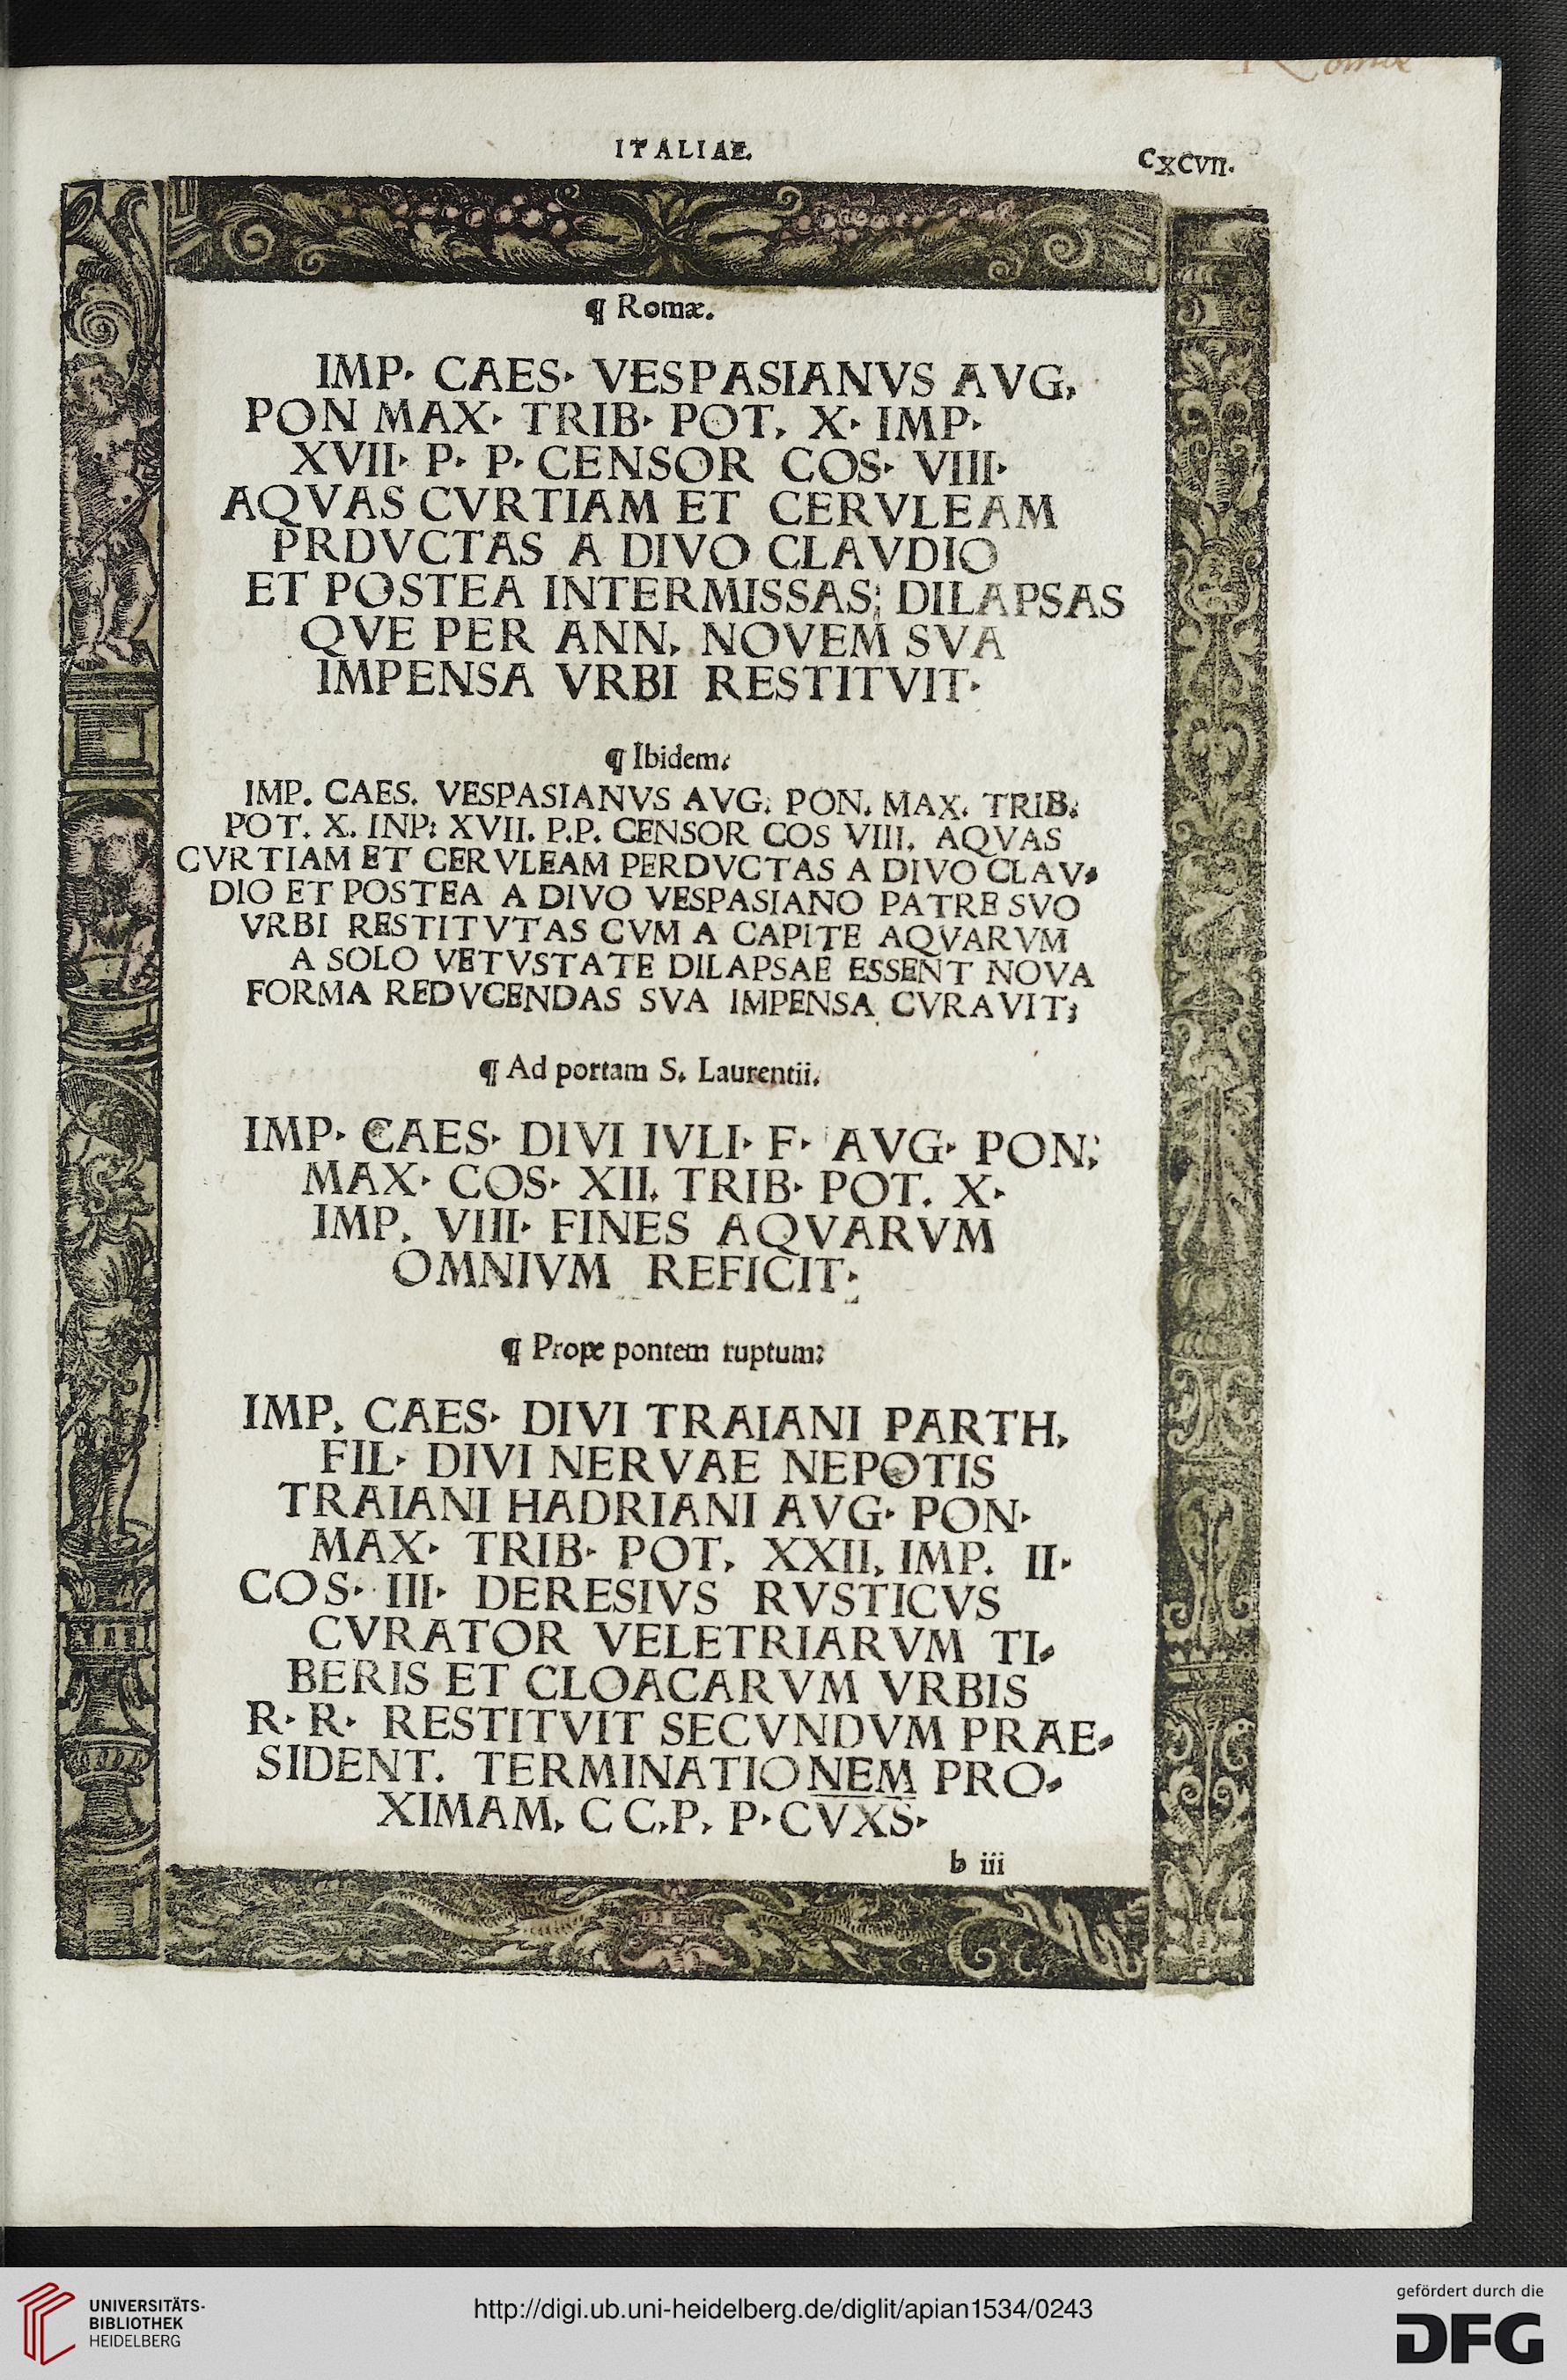 ITALIAE.
CXCVII.
¶ Romæ.
IMP. CAES. VESPASIANVS AVG.
PON MAX. TRIB. POT. X. IMP.
XVII. P. P. CENSOR COS. VIII.
AQVAS CVRTIAM ET CERVLEAM
PRDVCTAS A DIVO CLAVDIO
ET POSTEA INTERMISSAS; DILAPSAS
QVE PER ANN. NOVEM SVA
IMPENSA VRBI RESTITVIT.
¶ Ibidem.
IMP. CAES. VESPASIANVS AVG. PON. MAX. TRIB.
POT. X. INP: XVII. P.P. CENSOR COS VIII. AQVAS
CVRTIAM ET CERVLEAM PERDVCTAS A DIVO CLAV-
DIO ET POSTEA A DIVO VESPASIANO PATRE SVO
VRBI RESTITVTAS CVM A CAPITE AQVARVM
A SOLO VETVSTATE DILAPSAE ESSENT NOVA
FORMA REDVCENDAS SVA IMPENSA CVRAVIT;
¶ Ad portam S. Laurentii.
IMP. CAES. DIVI IVLI. F. AVG. PON;
MAX. COS. XII. TRIB. POT. X.
IMP. VIII. FINES AQVARVM
OMNIVM REFICIT;
¶ Prope pontem ruptum:
IMP. CAES. DIVI TRAIANI PARTH.
FIL. DIVI NERVAE NEPOTIS
TRAIANI HADRIANI AVG. PON.
MAX. TRIB. POT. XXII. IMP. II.
COS. III. DERESIVS RVSTICVS
CVRATOR VELETRIARVM TI-
BERIS ET CLOACARVM VRBIS
R. R. RESTITVIT SECVNDVM PRAE-
SIDENT. TERMINATIONEM PRO-
XIMAM. C C.P. P. CVXS.
b iii
UNIVERSITÄTS-
BIBLIOTHEK
HEIDELBERG
http://digi.ub.uni-heidelberg.de/diglit/apian1534/0243
gefördert durch die
DFG